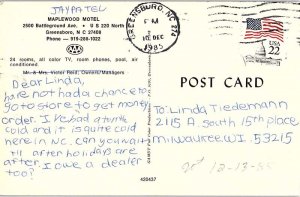 JAYPATEL
MAPLEWOOD MOTEL
2500 Battleground Ave. • U S 220 North
Greensboro, N C 27408
Phone — 919-288-1022
AAA
24 rooms, all color TV, room phones, pool, air
conditioned.
Mr. & Mrs. Victor Reid, Owners/Managers
Dear Linda,
have not had a chance to
go to store to get money
order. I've had a terrible
cold and it is quite cold
here in N.C. Can you wait
til after holidays are
after, I owe a dealer
too?
420437
GREENSBORO, NC 272
PM
10 DEC
1985
USA
22
POST CARD
To: Linda Tiedemann
2115 A south 15th place
Milwaukee WI. 53215
12-13-85